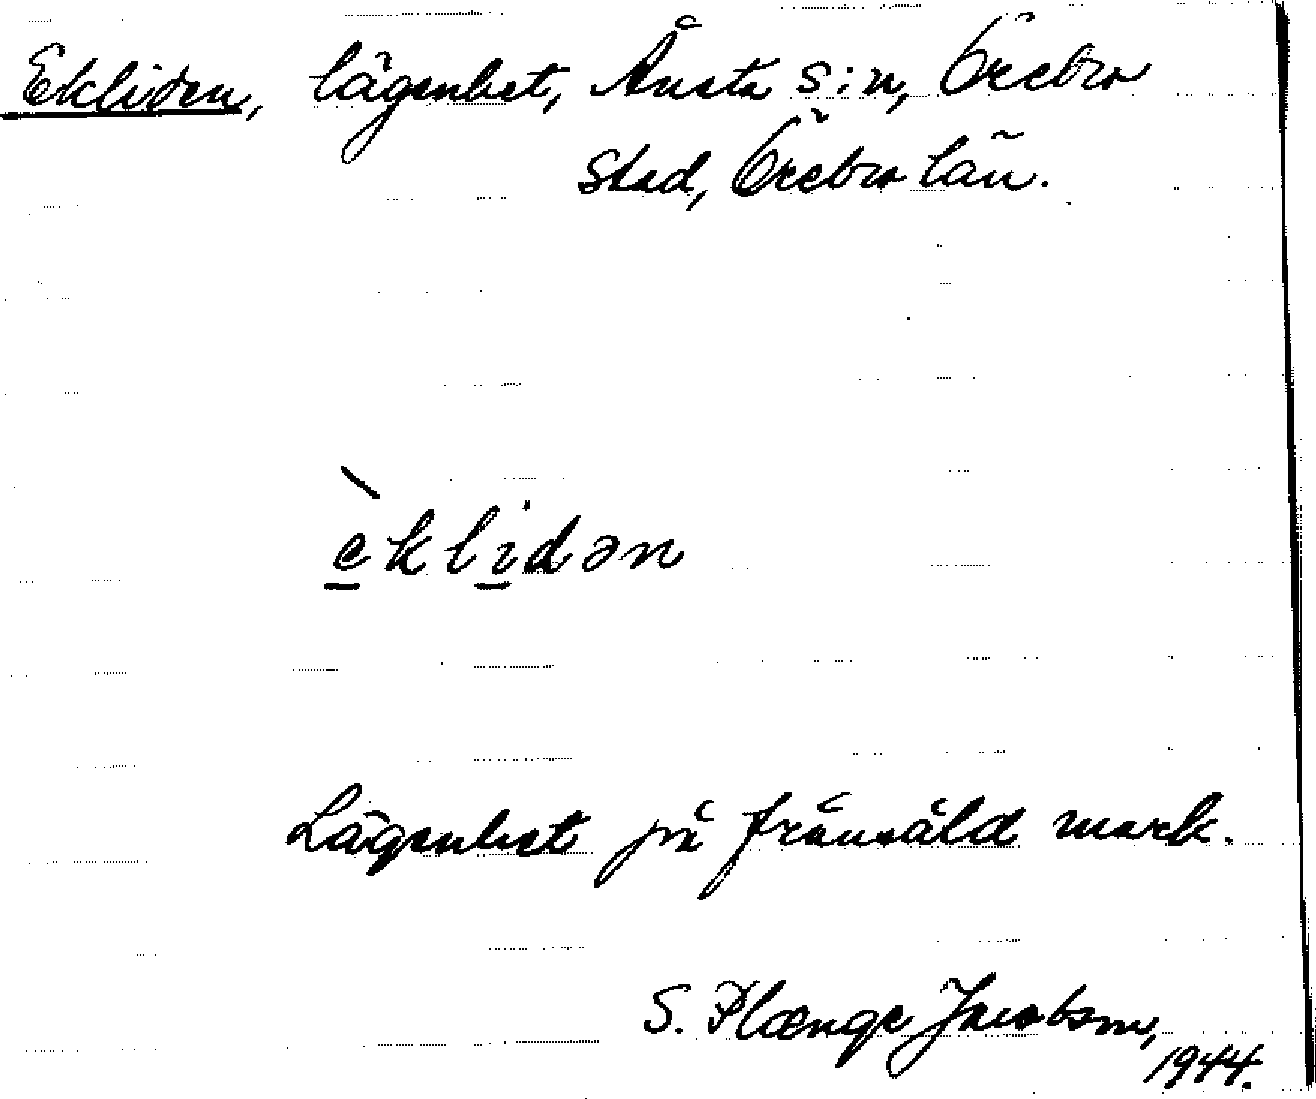 Ekliden, lägenhet, Ånsta s:n, Örebro
stad, Örebro län.
èklidən
Lägenhet på frånsåld mark.
S. Plænge Jacobson,
1944.